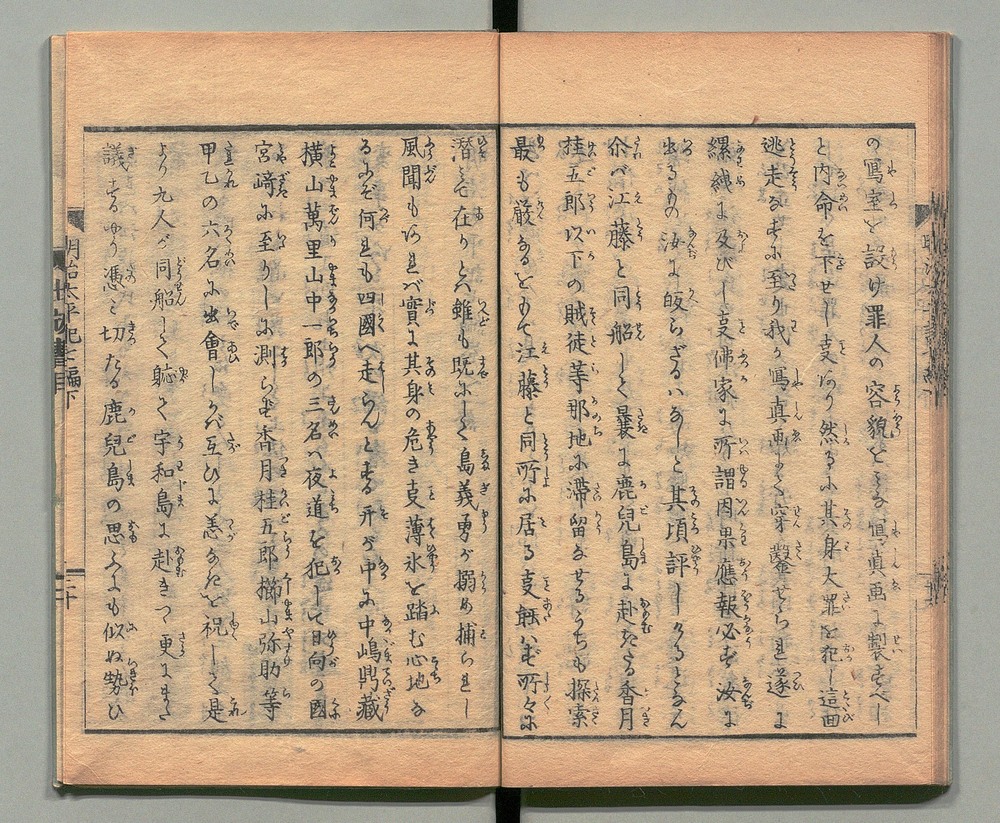 の寫室を設け罪人の容貌をとる寫真画に製すべし
と内命を下せし叓あり然るに其身大罪を犯し這回
逃走なすに至り我が寫真画にて穿鑿せられ遂に
縲絏に及びし叓佛家に所謂因果應報必ず汝に
出るもの汝に皈らざるハなしと其頃評しけるとなん
尒バ江藤と同船して曩に鹿兒島に赴きたる香月
桂五郎以下の賊徒等那地に滞留なせるうちも探索
最も嚴なるをもて江藤と同所に居る叓能ハず所々に
潜みて在りとハ雖も既にして島義勇が搦め捕られし
風聞もあれバ實に其身の危き叓薄氷を踏む心地な
るにぞ何れも四國へ走らんとする开が中に中嶋鼎藏
横山萬里山中一郎の三名ハ夜道を犯して日向の國
宮﨑に至りしに測らず香月桂五郎櫛山弥助等
甲乙の六名に出會しかバ互ひに恙なきを祝して是
より九人が同船して躮て宇和島に赴きつ更にまた
議するやう憑み切たる鹿兒島の思ふにも似ぬ勢ひ
明治太平記七編下
二十